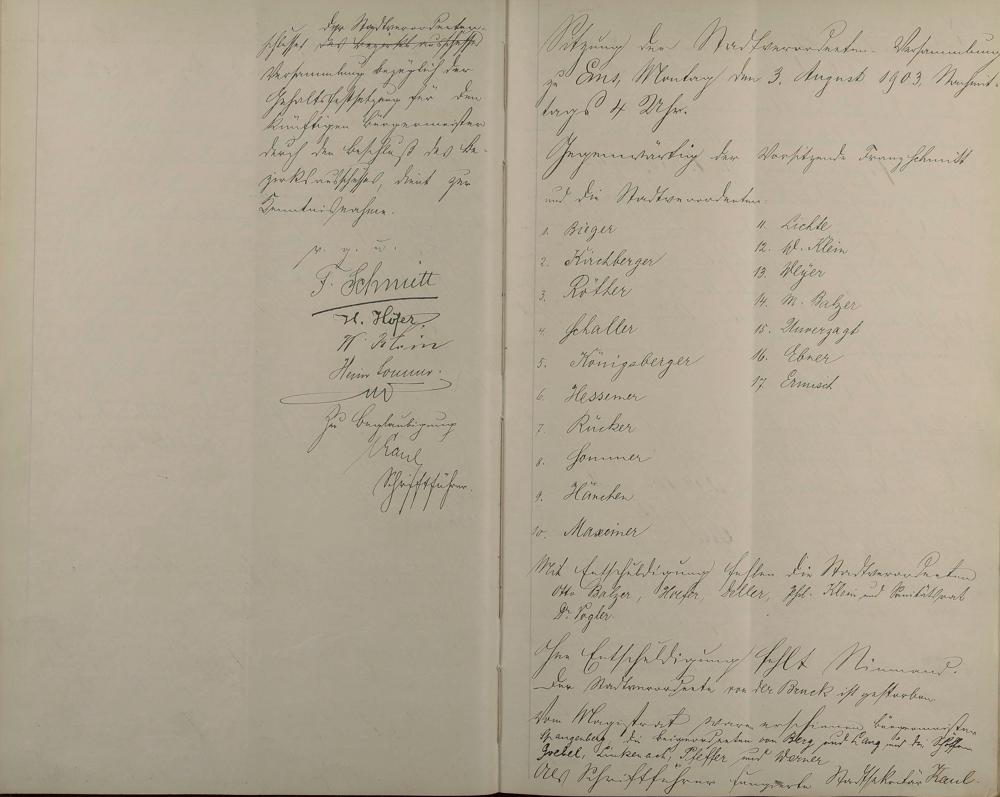 der Stadtverordneten-
schlusses des Bezirksausschusses
Versammlung bezüglich der
Gehaltsfestsetzung für den
künftigen Bürgermeister
durch den Beschluß des Be-
zirksausschusses, dient zur
Kenntnisnahme.
v. g. u.
F. Schmitt
H. Höfer
W. Stein
Heinr. Sommer.
Zu Beglaubigung
Kaul
Schriftführer.
Sitzung der Stadtverordneten-Versammlung
zu Ems, Montag den 3. August 1903, Nachmit-
tags 4 Uhr.
Gegenwärtig der Vorsitzende Franz Schmitt
und die Stadtverordneten:
1. Bieger
2. Kirchberger
3. Röther
4. Schaller
5. Königsberger
6. Hessemer
7. Rücker
8. Sommer
9. Hänchen
10. Maxeiner
11. Lichte
12. W. Klein
13. Weyer
14. M. Balzer
15. Unverzagt
16. Ebner
17. Ermisch
Mit Entschuldigung fehlen die Stadtverordneten
Otto Balzer, Hoefer, Phil. Klein und Sanitätsrat
Dr. Vogler.
Ohne Entschuldigung fehlt Niemand.
Der Stadtverordnete von der Bruck ist gestorben.
Vom Magistrat waren erschienen Bürgermeister
Spangenberg, die Beigeordneten von Berg und Lang und die Schöffen
Goebel, Linkenbach, Pfeffer und Werner
Als Schriftführer fungierte Stadtsekretär Kaul.